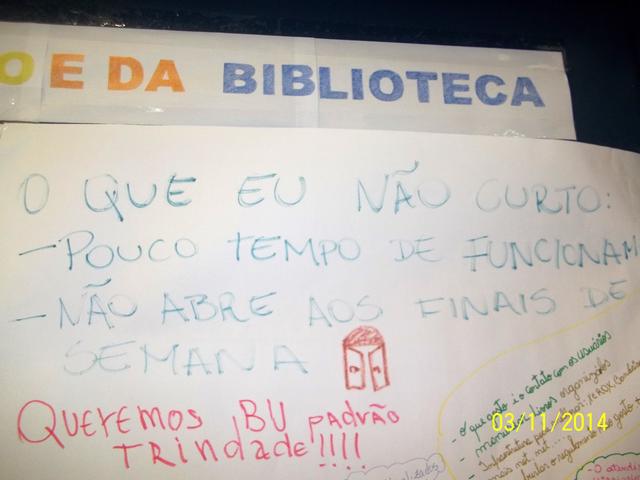 O E DA BIBLIOTECA
O QUE EU NÃO CURTO:
- POUCO TEMPO DE FUNCIONAM
- NÃO ABRE AOS FINAIS DE
SEMANA
QUEREMOS BU PADRÃO
TRINDADE!!!!
- O que gosto é o contato com os usuários
03/11/2014
- O atendi